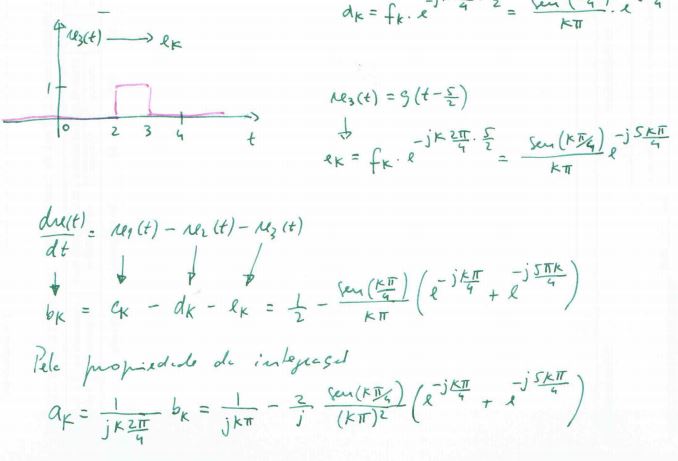 d_K = f_K · e^{-j...} = \frac{sen(...)}{Kπ} · e^{...}
x_3(t) ⟶ e_K
1
0 2 3 4 t
x_3(t) = g(t - \frac{5}{2})
↓
e_K = f_K · e^{-jK \frac{2π}{4} · \frac{5}{2}} = \frac{sen(K π/4)}{Kπ} e^{-j \frac{5Kπ}{4}}
\frac{dx(t)}{dt} = x_1(t) - x_2(t) - x_3(t)
↓ ↓ ↓ ↓
b_K = c_K - d_K - e_K = \frac{1}{2} - \frac{sen(\frac{Kπ}{4})}{Kπ} (e^{-j \frac{Kπ}{4}} + e^{-j \frac{5πK}{4}})
Pela propriedade da integral
a_K = \frac{1}{jK \frac{2π}{4}} b_K = \frac{1}{jKπ} - \frac{2}{j} \frac{sen(K π/4)}{(Kπ)^2} (e^{-j \frac{Kπ}{4}} + e^{-j \frac{5Kπ}{4}})